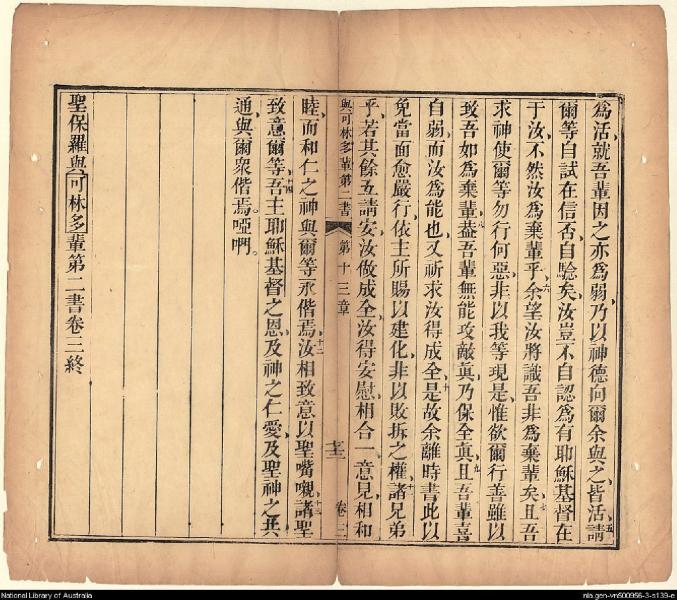 為活就吾輩因之亦為弱乃以神德向爾余與之皆活請
五
爾等自試在信否自驗矣汝豈不自認為有耶穌基督在
于汝不然汝為棄輩乎余望汝將識吾非為棄輩矣且吾
六
七
求神使爾等勿行何惡非以我等現是惟欲爾行善雖以
致吾如為棄輩葢吾輩無能攻敵眞乃保全眞且吾輩喜
八
九
自弱而汝為能也又祈求汝得成全是故余離時書此以
十
免當面愈嚴行依主所賜以建化非以敗拆之權諸兄弟
十一
乎若其餘五請安汝做成全汝得安慰相合一意見相和
與可林多輩第二書 第十三章 十三 卷三
睦而和仁之神與爾等永偕焉汝相致意以聖嘴嚫諸聖
十二
十三
致意爾等吾主耶穌基督之恩及神之仁愛及聖神之共
十四
通與爾衆偕焉。啞啊。
聖保羅與可林多輩第二書卷三終
National Library of Australia
nla.gen-vn500956-3-s139-e